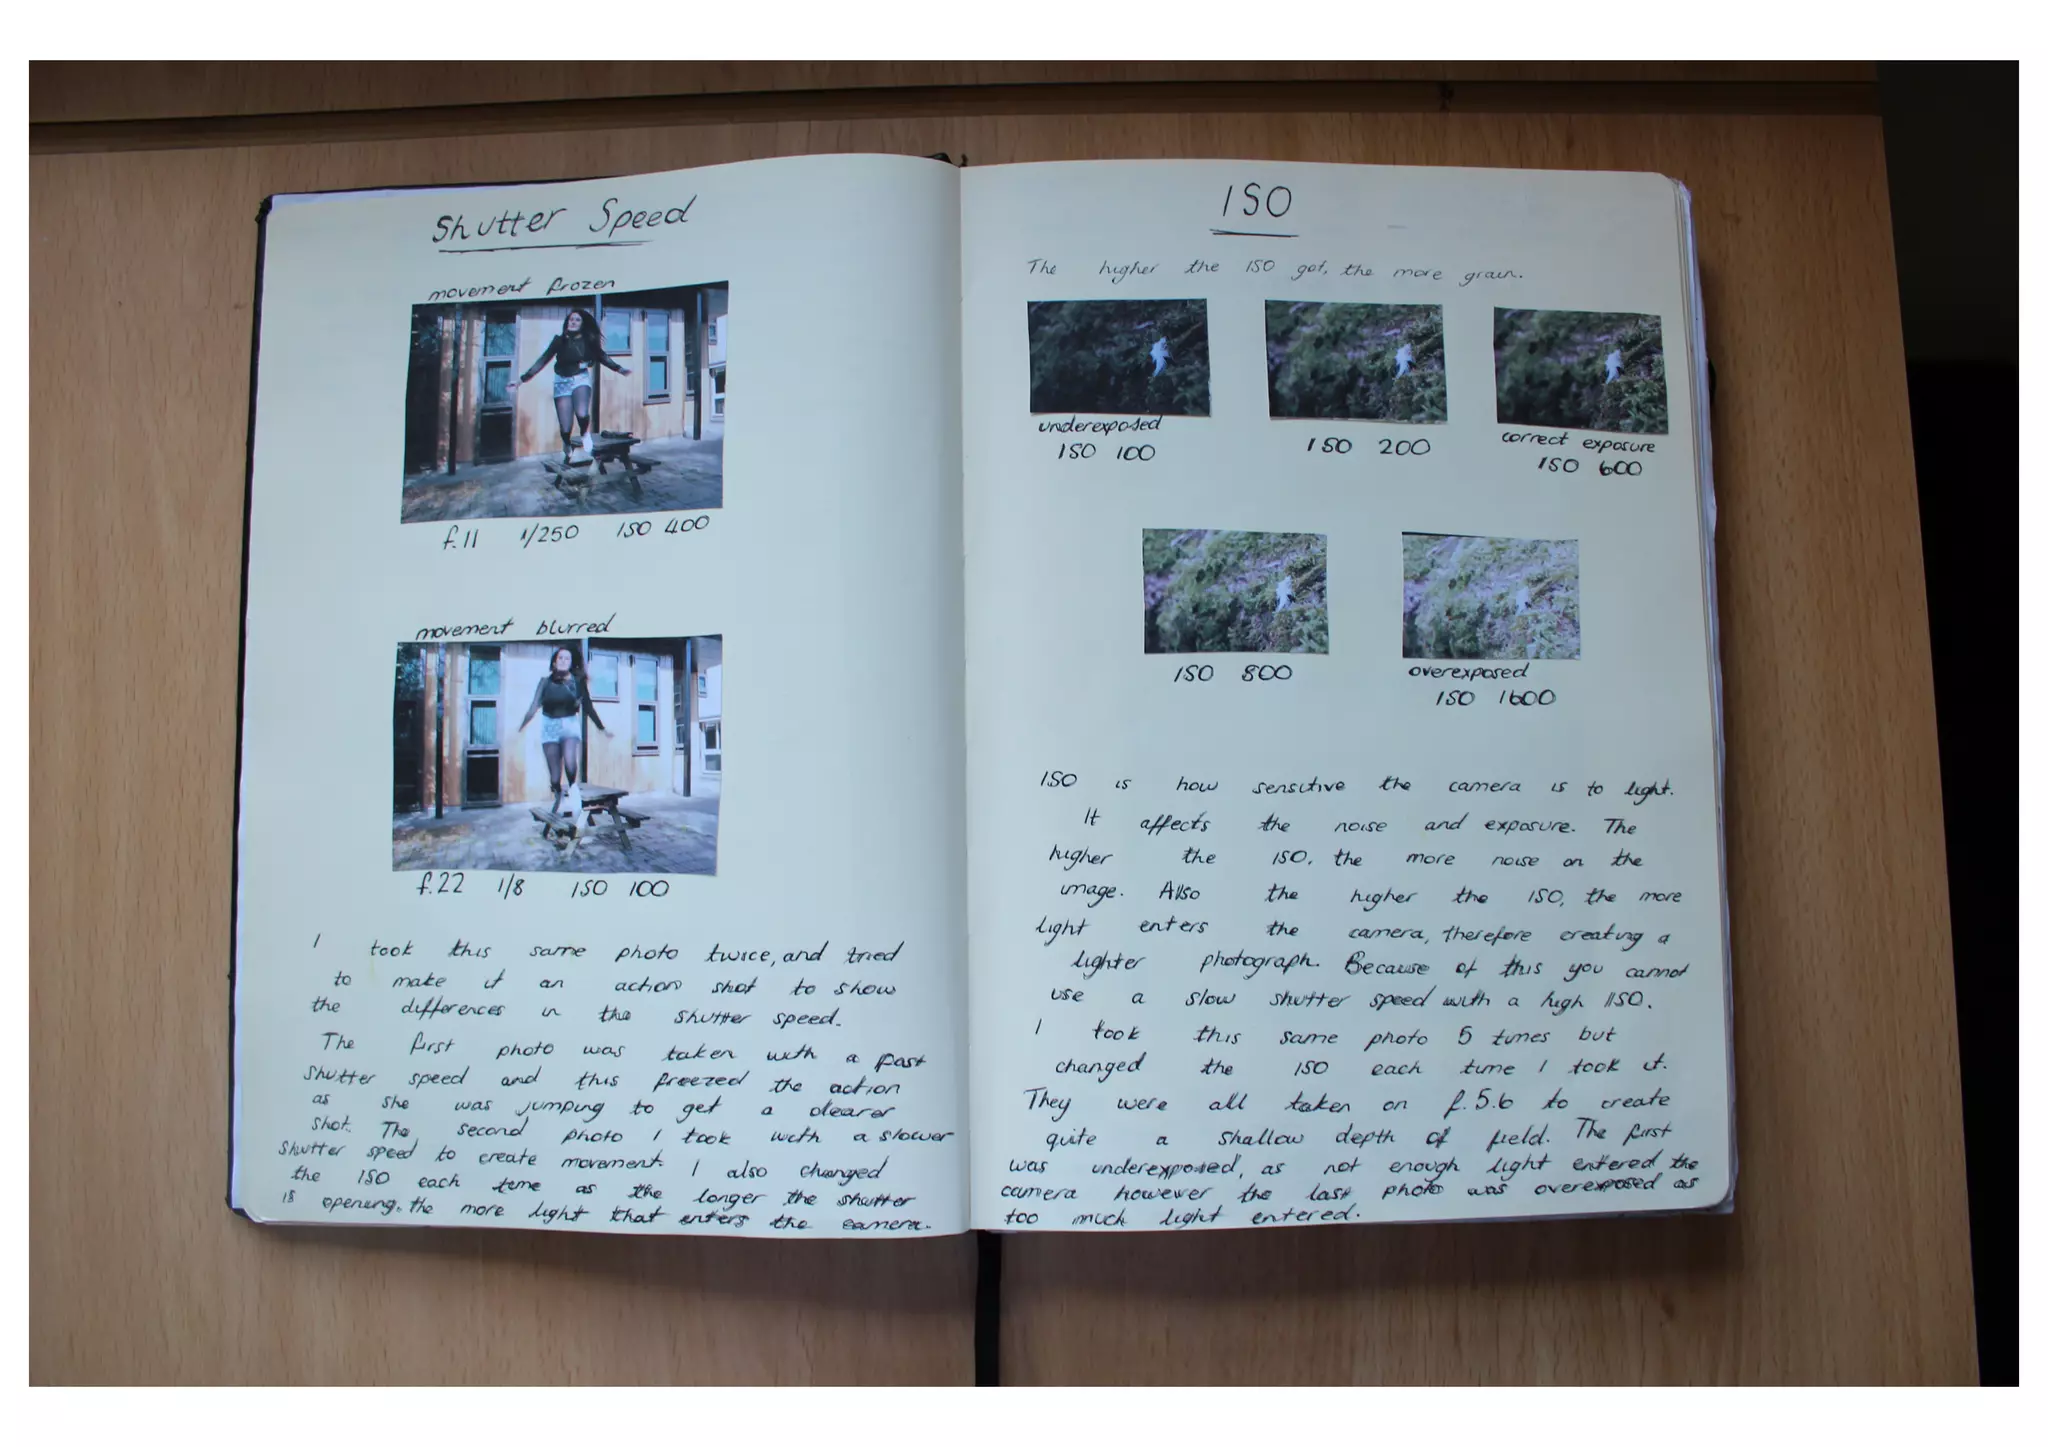 Shutter Speed
movement frozen
f.11 1/250 ISO 400
movement blurred
f.22 1/8 ISO 100
I took this same photo twice, and tried
to make it an action shot to show
the differences in the shutter speed.
The first photo was taken with a fast
shutter speed and this freezed the action
as she was jumping to get a clearer
shot. The second photo I took with a slower
shutter speed to create movement. I also changed
the ISO each time as the longer the shutter
is opening, the more light that enters the camera.
ISO
The higher the ISO got, the more grain.
underexposed
ISO 100
ISO 200
correct exposure
ISO 600
ISO 800
overexposed
ISO 1600
ISO is how sensitive the camera is to light.
It affects the noise and exposure. The
higher the ISO, the more noise on the
image. Also the higher the ISO, the more
light enters the camera, therefore creating a
lighter photograph. Because of this you cannot
use a slow shutter speed with a high ISO.
I took this same photo 5 times but
changed the ISO each time I took it.
They were all taken on f.5.6 to create
quite a shallow depth of field. The first
was underexposed, as not enough light entered the
camera however the last photo was overexposed as
too much light entered.